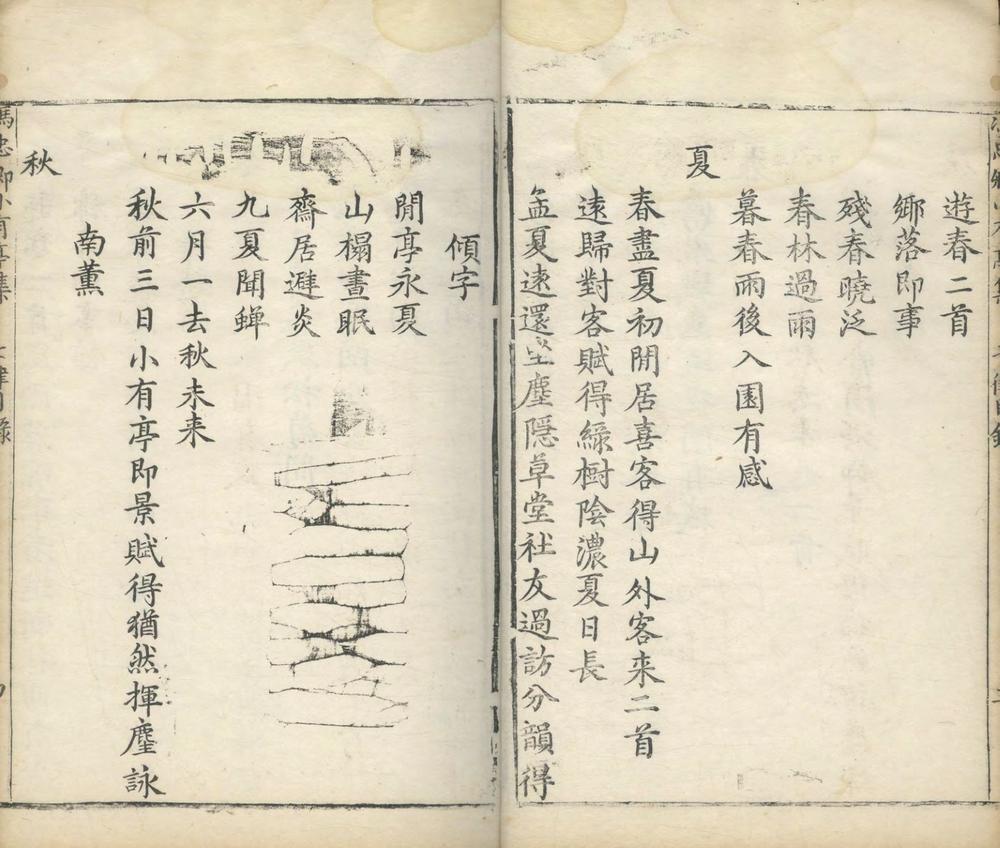 遊春二首
鄉落即事
殘春曉泛
春林過雨
暮春雨後入園有感
夏
春盡夏初閒居喜客得山外客來二首
速歸對客賦得綠樹陰濃夏日長
孟夏速還坐塵隱草堂社友過訪分韻得
傾字
閒亭永夏
山榻晝眠
齋居避炎
九夏聞蟬
六月一去秋未来
秋前三日小有亭即景賦得猶然揮麈詠
南薰
秋
馮忠卿小有亭集
七律目錄